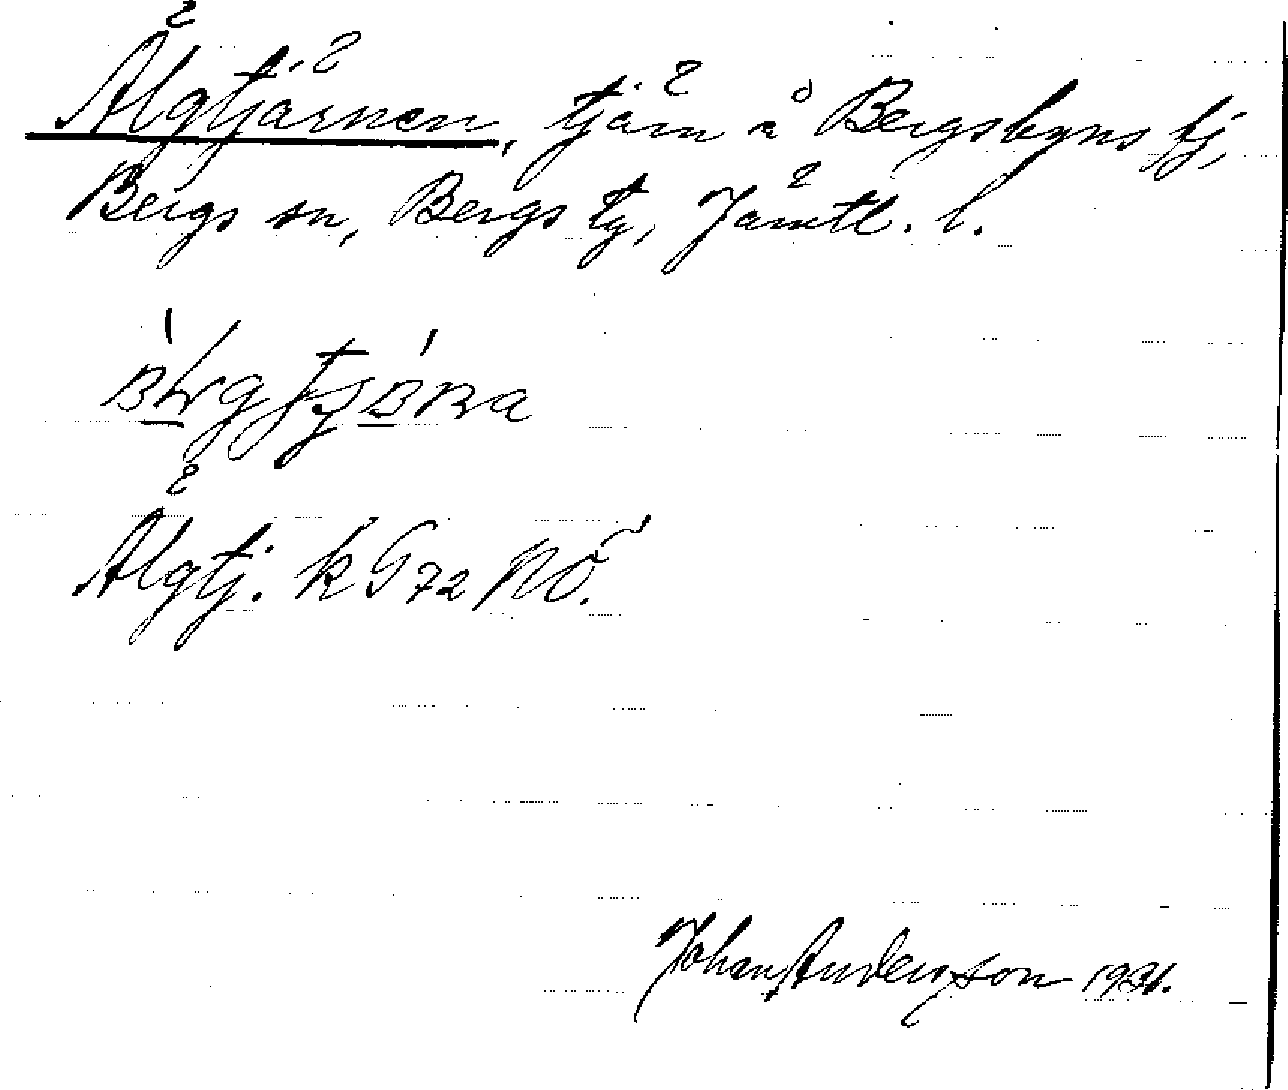 Älgtjärnen, tjärn å Bergsbyns fj,
Bergs sn, Bergs tg, Jämtl. l.
Älgtj. k G 72 NÖ.
Johan Anderson 1931.